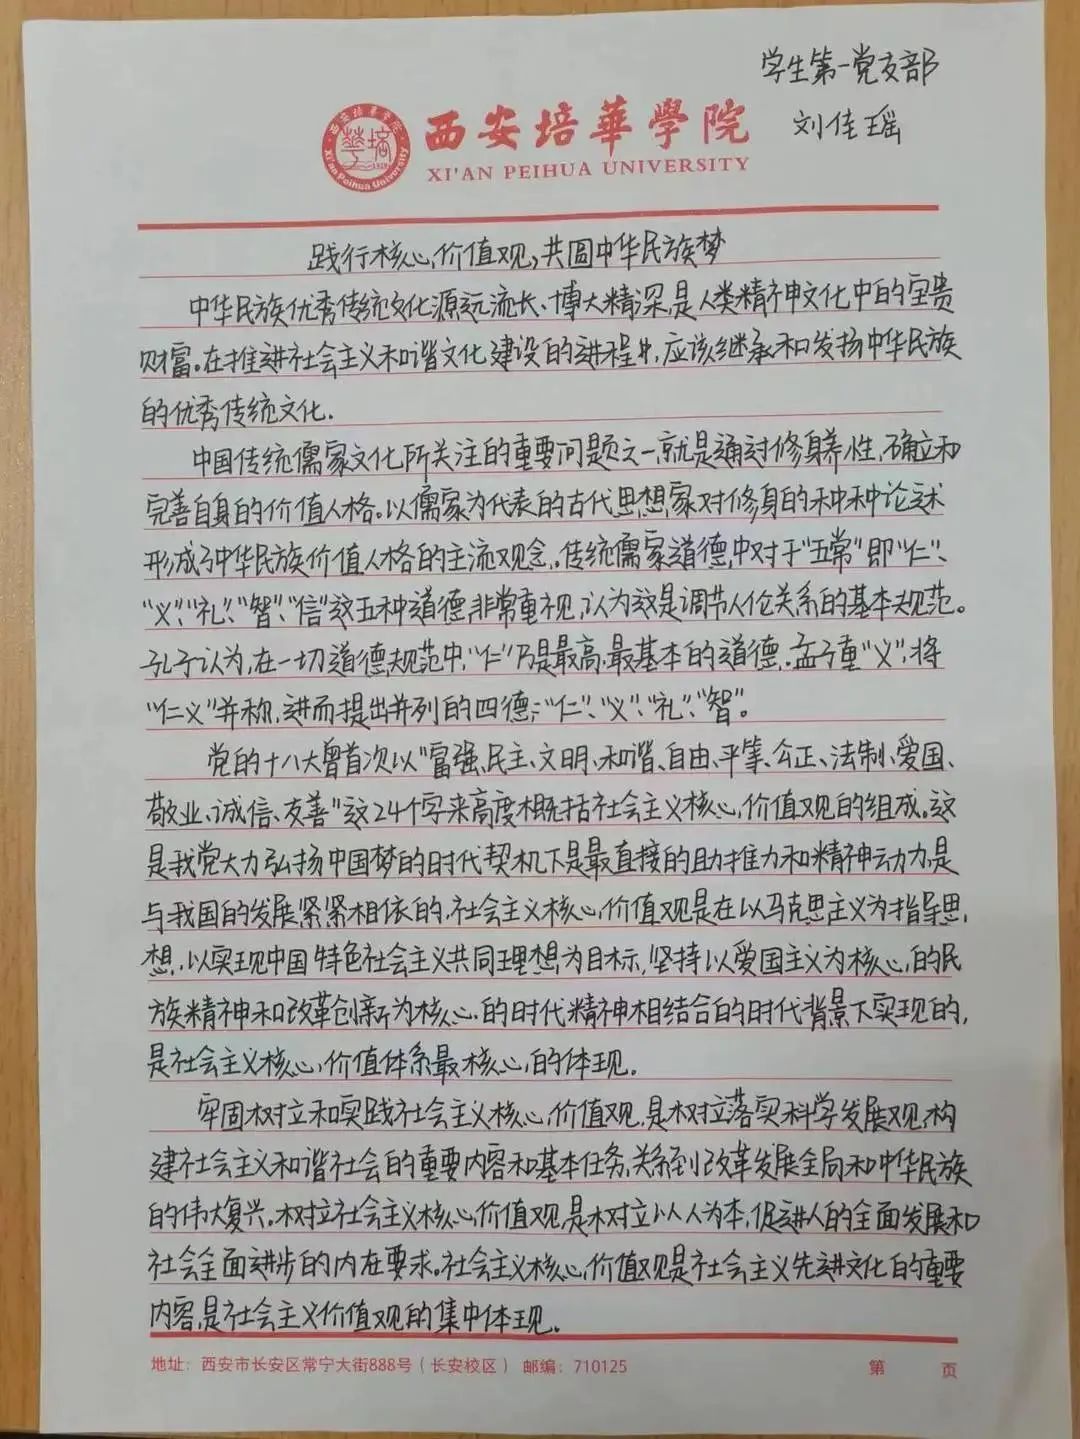 学生第一党支部
刘佳瑶
西安培華學院
XI'AN PEIHUA UNIVERSITY
西安培華學院
Xi'an Peihua University
践行核心价值观,共圆中华民族梦
中华民族优秀传统文化源远流长、博大精深,是人类精神文化中的宝贵
财富。在推进社会主义和谐文化建设的进程中,应该继承和发扬中华民族
的优秀传统文化.
中国传统儒家文化所关注的重要问题之一,就是通过修身养性,确立和
完善自身的价值人格。以儒家为代表的古代思想家对修身的种种论述
形成了中华民族价值人格的主流观念。传统儒家道德中对于“五常”即“仁”、
“义”、“礼”、“智”、“信”这五种道德非常重视,认为这是调节人伦关系的基本规范。
孔子认为,在一切道德规范中,“仁”乃是最高、最基本的道德.孟子重“义”,将
“仁义”并称,进而提出并列的四德:“仁”、“义”、“礼”、“智”。
党的十八大曾首次以“富强、民主、文明、和谐、自由、平等、公正、法制、爱国、
敬业、诚信、友善”这24个字来高度概括社会主义核心价值观的组成。这
是我党大力弘扬中国梦的时代契机下是最直接的助推力和精神动力,是
与我国的发展紧紧相依的.社会主义核心价值观是在以马克思主义为指导思
想,以实现中国特色社会主义共同理想为目标,坚持以爱国主义为核心的民
族精神和改革创新为核心的时代精神相结合的时代背景下实现的,
是社会主义核心价值体系最核心的体现.
牢固树立和实践社会主义核心价值观,是树立落实科学发展观,构
建社会主义和谐社会的重要内容和基本任务,关系到改革发展全局和中华民族
的伟大复兴。树立社会主义核心价值观,是树立以人为本,促进人的全面发展和
社会全面进步的内在要求。社会主义核心价值观是社会主义先进文化的重要
内容,是社会主义价值观的集中体现。
地址:西安市长安区常宁大街888号(长安校区) 邮编:710125 第 页